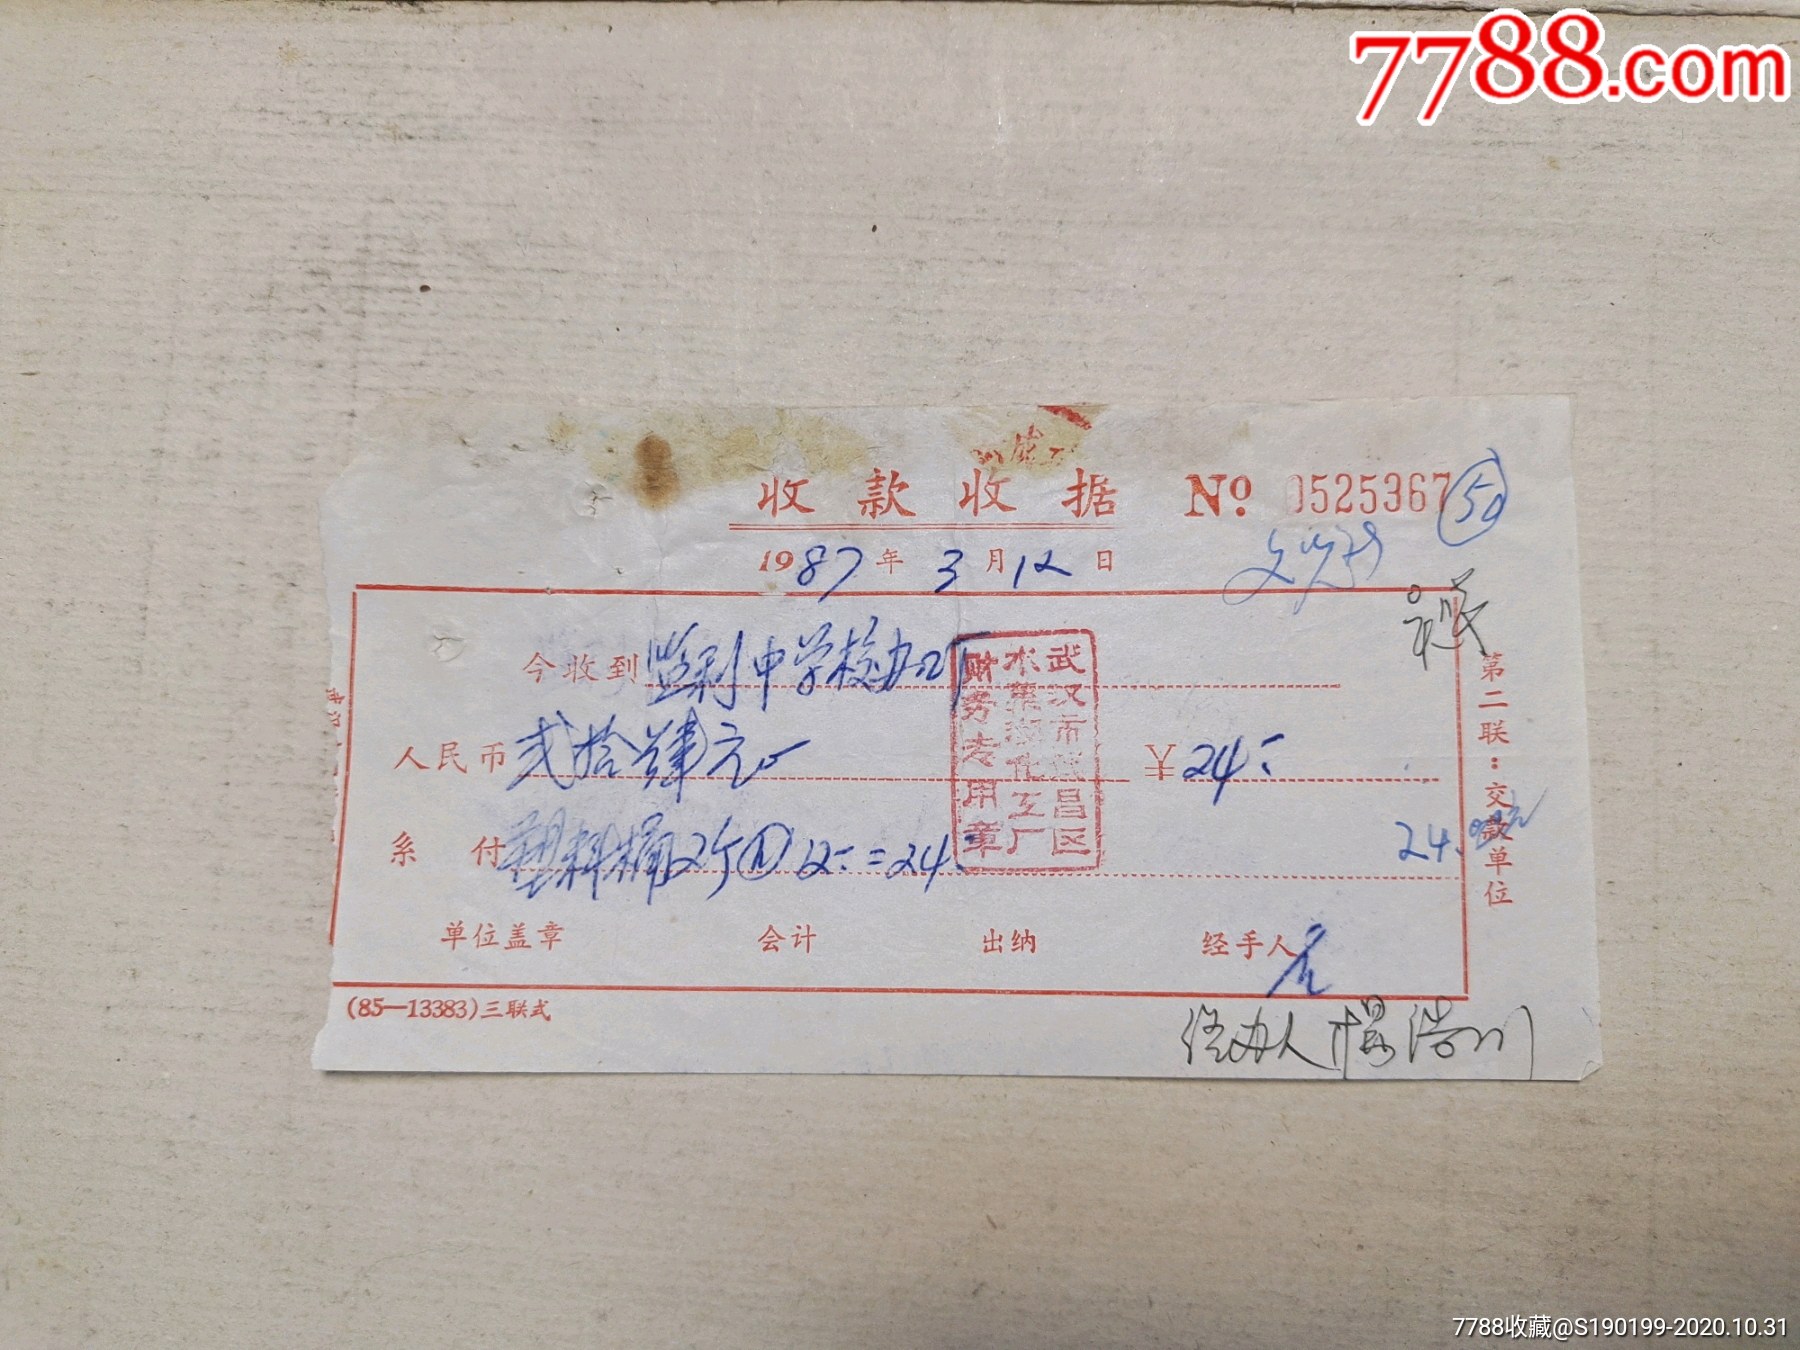 7788.com
收款收据 No 0525367 50
1987年3月12日
今收到 监利中学校办厂
人民币 贰拾肆元 ¥24
系付 塑料桶2个@12=24
24.00元
武汉市武昌区
水果湖化工厂
财务专用章
第二联：交款单位
单位盖章 会计 出纳 经手人
(85—13383)三联式
经办人 杨浩川
7788收藏@S190199-2020.10.31